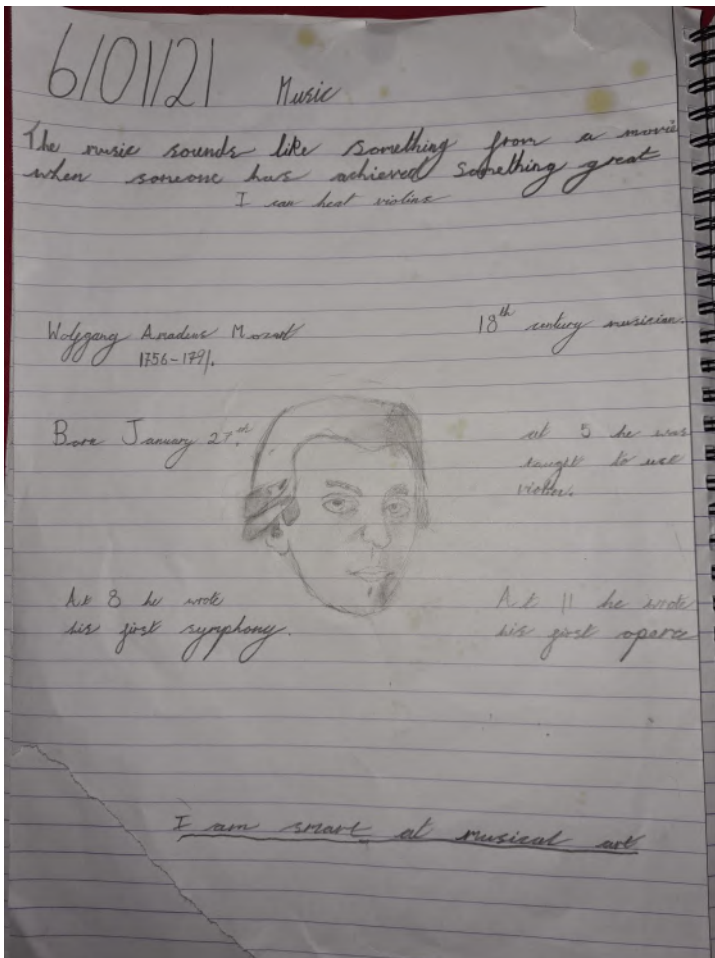 6/01/21
Music
The music sounds like something from a movie
when someone has achieved something great
I can heat violins
Wolfgang Amadeus Mozart
1756-1791.
18th century musician.
Born January 27th.
at 5 he was
taught to use
violin.
At 8 he wrote
his first symphony.
At 11 he wrote
his first opera
I am smart at musical art